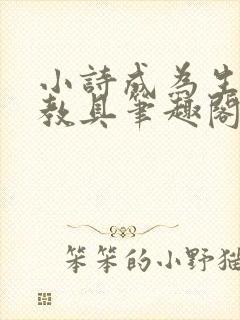 小詩成為生
教具筆趣閣
笨笨的小野猫